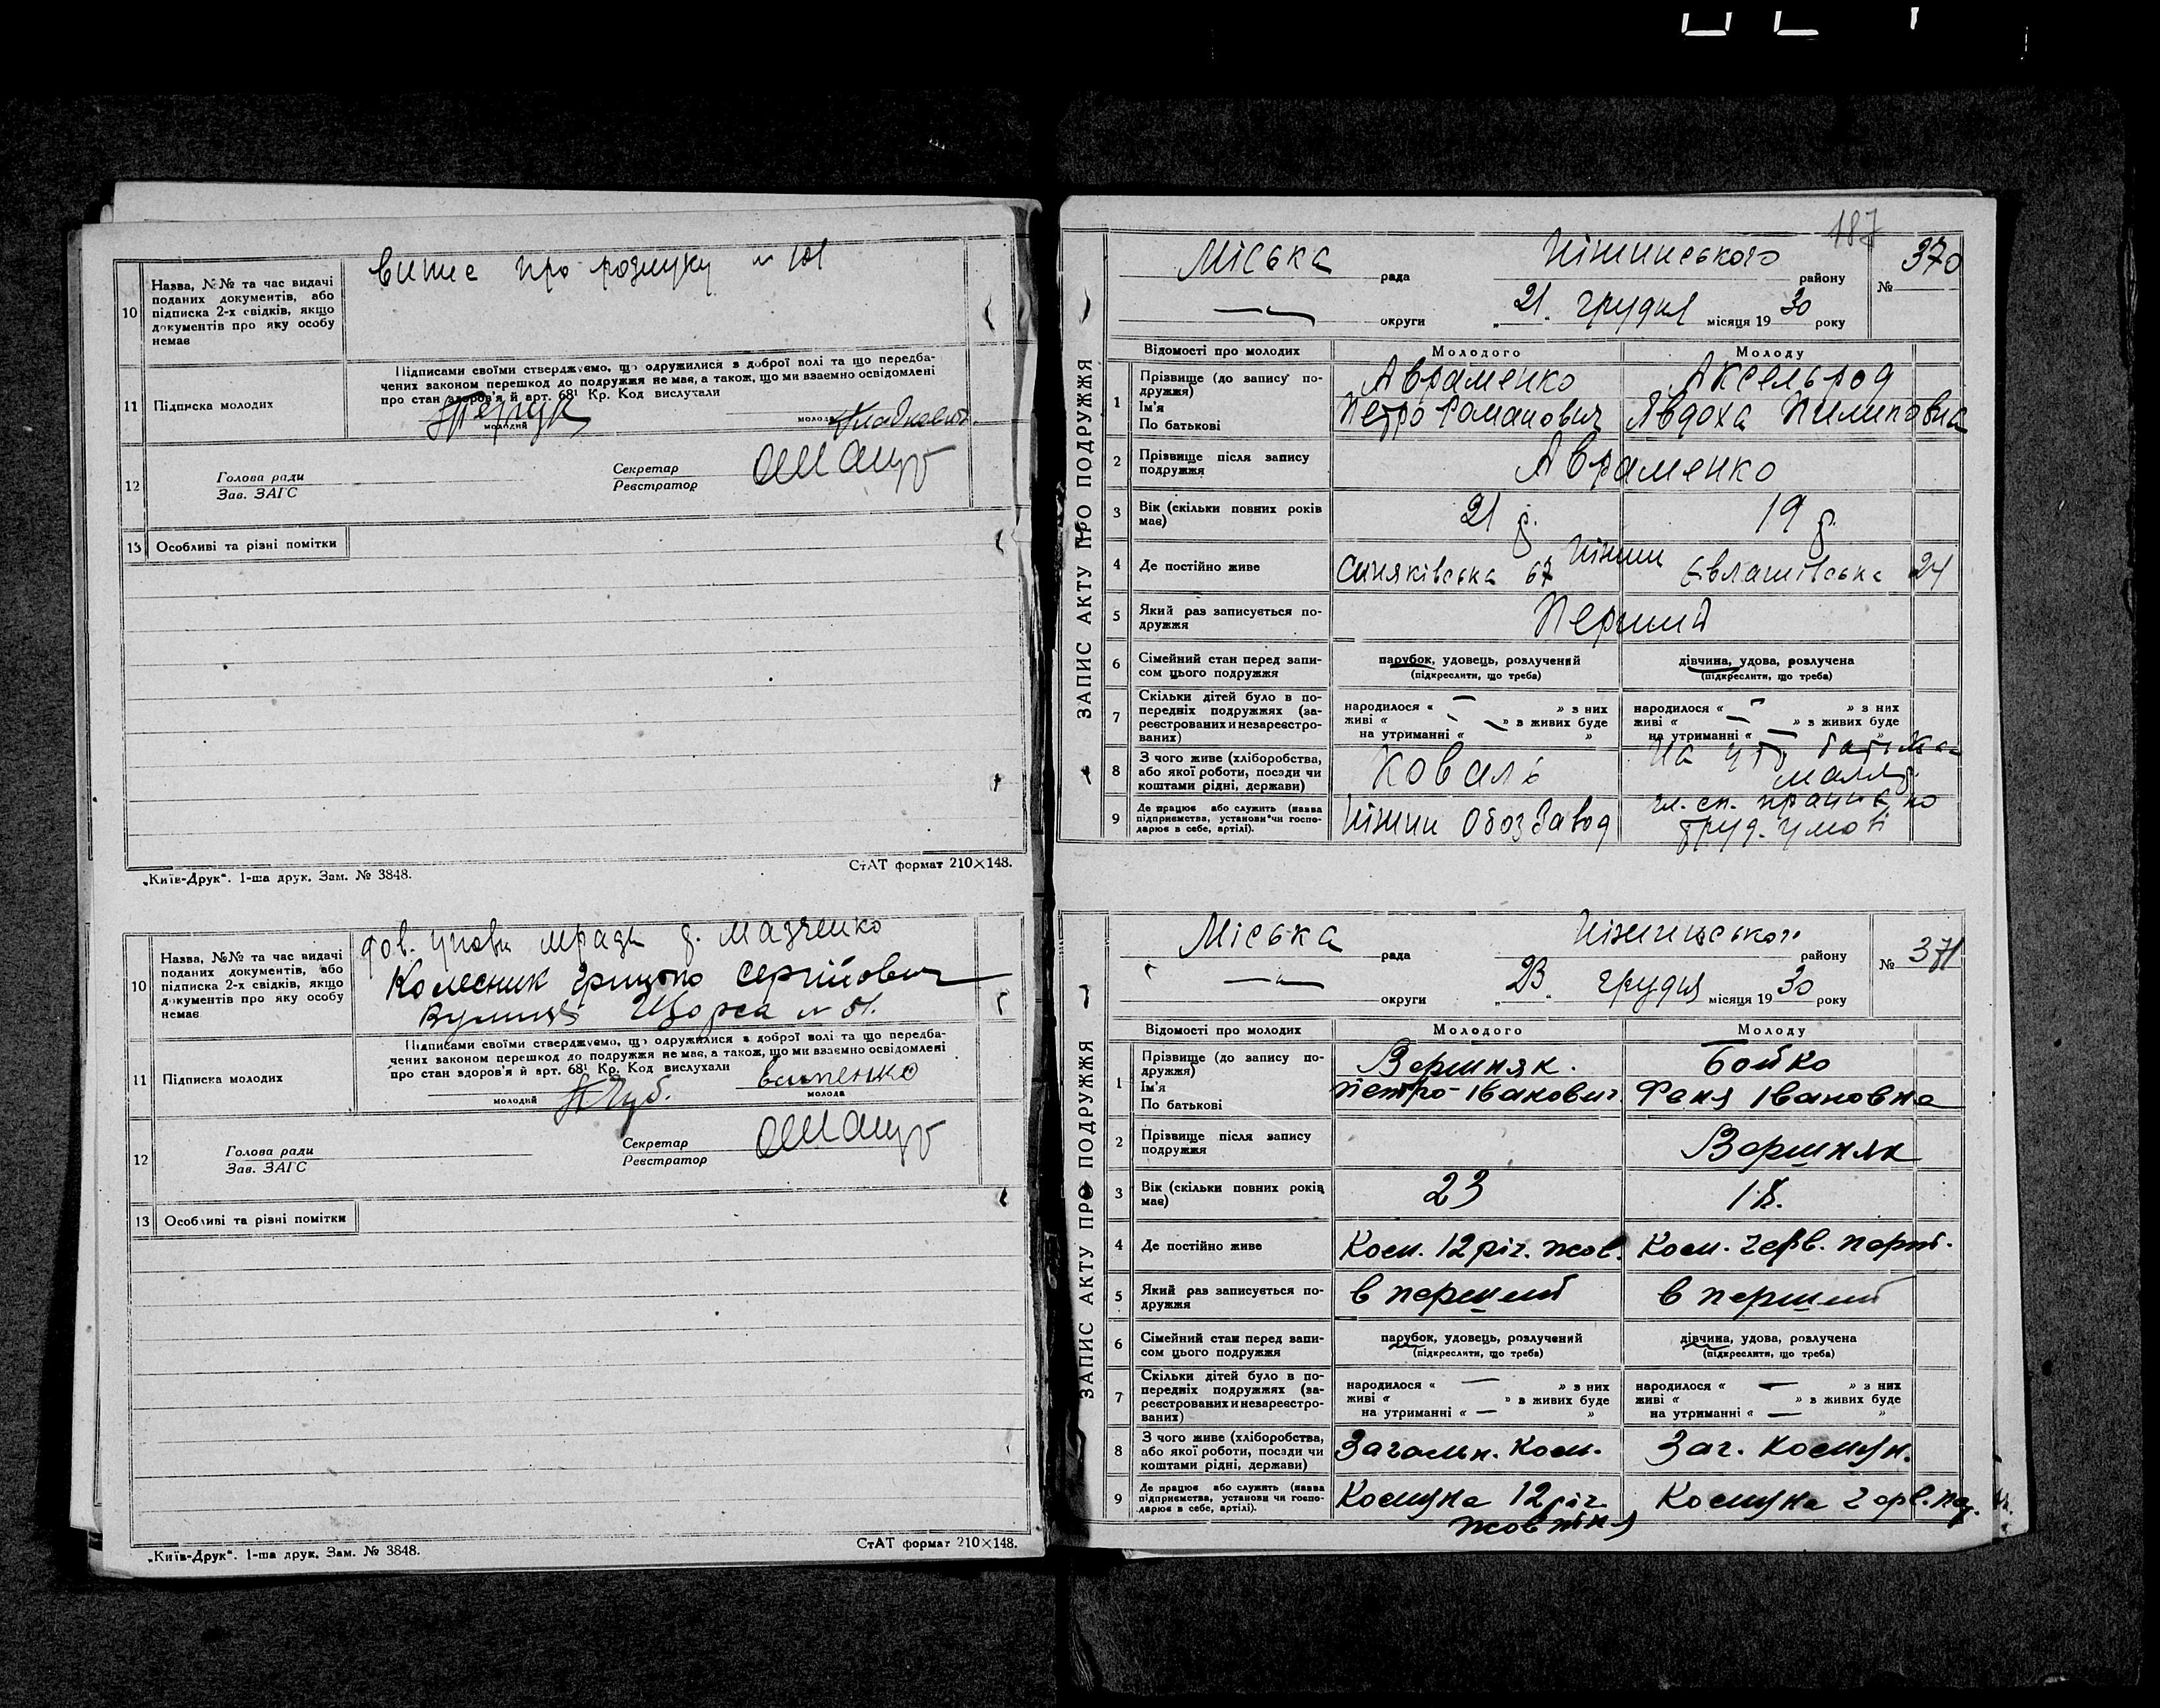 10
Назва, №№ та час видачі
поданих документів, або
підписка 2-х свідків, якщо
документів про яку особу
немає
випис про розлуку № 101
11
Підписка молодих
Підписами своїми стверджуємо, що одружилися з доброї волі та що передба-
чених законом перешкод до подружжя немає, а також, що ми взаємно освідомлені
про стан здоров'я й арт. 68¹ Кр. Код вислухали
молодий
молода
12
Голова ради
Зав. ЗАГС
Секретар
Реєстратор
13
Особливі та різні помітки
„Київ-Друк“. 1-ша друк. Зам. № 3848.
СтАТ формат 210×148.
10
Назва, №№ та час видачі
поданих документів, або
підписка 2-х свідків, якщо
документів про яку особу
немає
Колесник Грицько Сергійович
Вулиця Щорса № 51.
11
Підписка молодих
Підписами своїми стверджуємо, що одружилися з доброї волі та що передба-
чених законом перешкод до подружжя немає, а також, що ми взаємно освідомлені
про стан здоров'я й арт. 68¹ Кр. Код вислухали
молодий
молода
12
Голова ради
Зав. ЗАГС
Секретар
Реєстратор
13
Особливі та різні помітки
„Київ-Друк“. 1-ша друк. Зам. № 3848.
СтАТ формат 210×148.
187
ЗАПИС АКТУ ПРО ПОДРУЖЖЯ
Міська рада Ніжинського району № 370
округи „21“ грудня місяця 1930 року
Відомості про молодих
Молодого
Молоду
1
Прізвище (до запису по-
дружжя)
Ім'я
По батькові
Авраменко
Петро Романович
Аксельрод
Явдоха Пилиповна
2
Прізвище після запису
подружжя
Авраменко
3
Вік (скільки повних років
має)
21 р.
19 р.
4
Де постійно живе
Ніжин
Синяківська 67
Євлашівська 24
5
Який раз записується по-
дружжя
Перший
6
Сімейний стан перед запи-
сом цього подружжя
парубок, удовець, розлучений
(підкреслити, що треба)
дівчина, удова, розлучена
(підкреслити, що треба)
7
Скільки дітей було в по-
передніх подружжях (за-
реєстрованих и незареєстро-
ваних)
народилося « » з них
живі « » в живих буде
на утриманні « »
народилося « » з них
живі « » в живих буде
на утриманні « »
8
З чого живе (хліборобства,
або якої роботи, посади чи
коштами рідні, держави)
Коваль
На ут. батька
маляр.
9
Де працює або служить (назва
підприємства, установи чи госпо-
дарює в себе, артілі).
Ніжин Обозавод
труд. умові
ЗАПИС АКТУ ПРО ПОДРУЖЖЯ
Міська рада Ніжинського району № 371
округи „23“ грудня місяця 1930 року
Відомості про молодих
Молодого
Молоду
1
Прізвище (до запису по-
дружжя)
Ім'я
По батькові
Вершняк.
Петро Іванович
Бойко
Феня Івановна
2
Прізвище після запису
подружжя
Вершняк
3
Вік (скільки повних років
має)
23
18.
4
Де постійно живе
Ком. 12 річ. жов.
Ком. Черв. парт.
5
Який раз записується по-
дружжя
в перший
в перший
6
Сімейний стан перед запи-
сом цього подружжя
парубок, удовець, розлучений
(підкреслити, що треба)
дівчина, удова, розлучена
(підкреслити, що треба)
7
Скільки дітей було в по-
передніх подружжях (за-
реєстрованих и незареєстро-
ваних)
народилося « » з них
живі « » в живих буде
на утриманні « »
народилося « » з них
живі « » в живих буде
на утриманні « »
8
З чого живе (хліборобства,
або якої роботи, посади чи
коштами рідні, держави)
Загальн. Ком.
Заг. Комун.
9
Де працює або служить (назва
підприємства, установи чи госпо-
дарює в себе, артілі).
Комуна 12 річ
жовтня
Комуна Черв. пар.